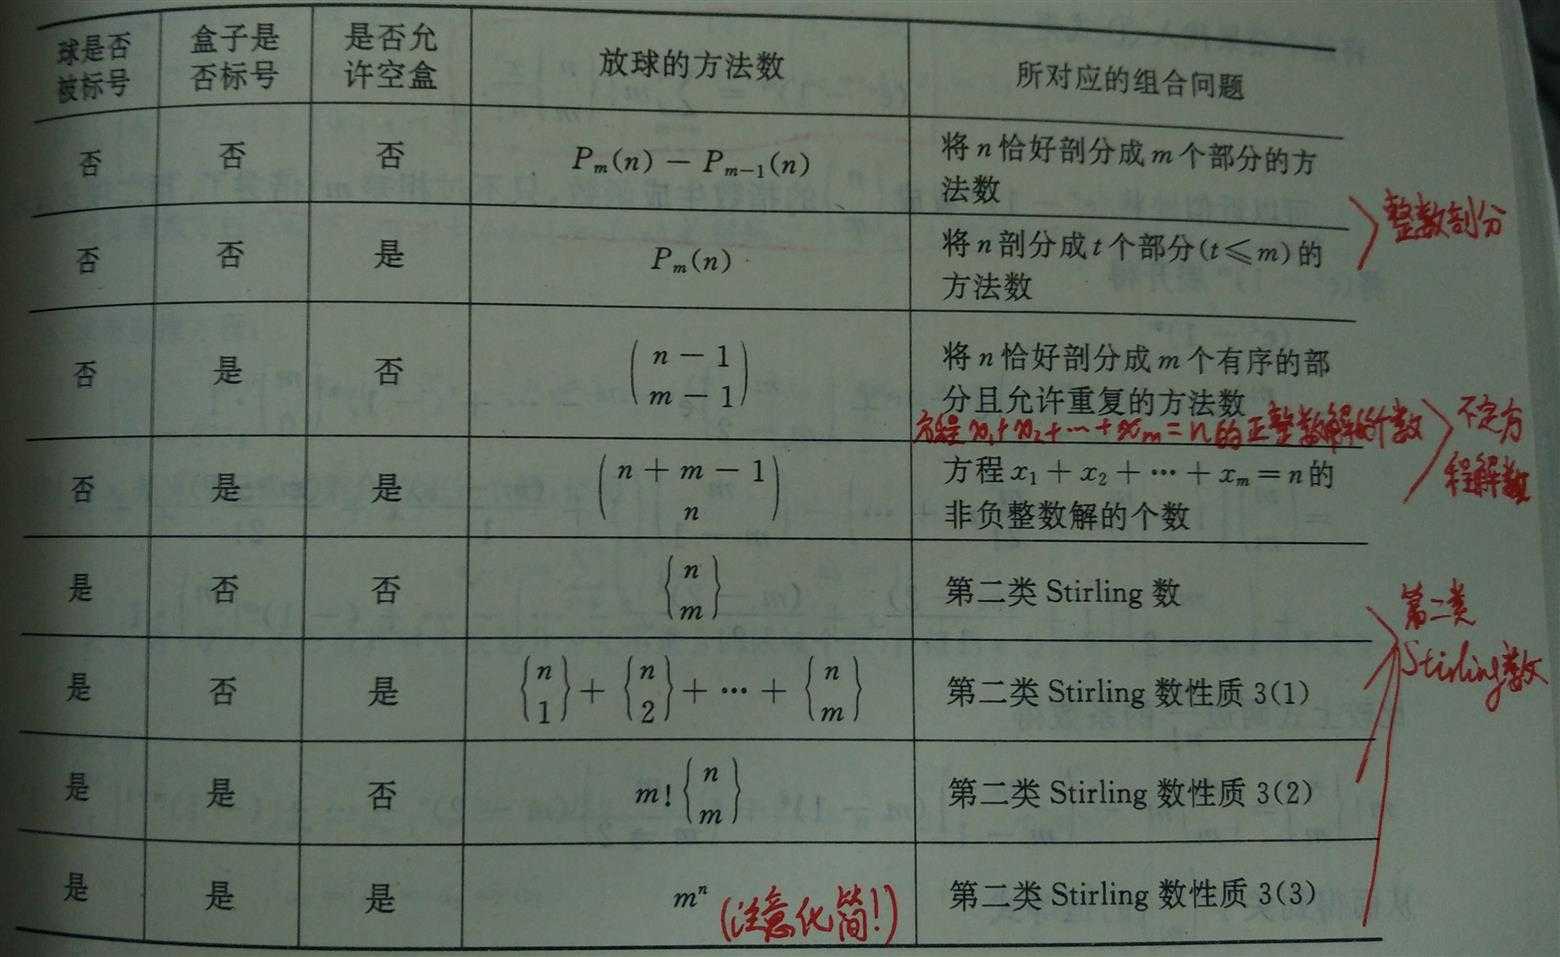 球是否
被标号
盒子是
否标号
是否允
许空盒
放球的方法数
所对应的组合问题
否 否 否 P_m(n) − P_{m−1}(n)
将 n 恰好剖分成 m 个部分的方
法数
否 否 是 P_m(n)
将 n 剖分成 t 个部分(t⩽m)的
方法数
整数剖分
否 是 否 (n − 1
m − 1)
将 n 恰好剖分成 m 个有序的部
分且允许重复的方法数
方程 x₁+x₂+…+x_m=n 的正整数解的个数
否 是 是 (n + m − 1
n)
方程 x₁ + x₂ + ⋯ + x_m = n 的
非负整数解的个数
不定方
程解数
是 否 否 {n
m}
第二类 Stirling 数
是 否 是 {n
1} + {n
2} + ⋯ + {n
m}
第二类 Stirling 数性质 3(1)
第二类
Stirling数
是 是 否 m! {n
m}
第二类 Stirling 数性质 3(2)
是 是 是 mⁿ (注意化简!)
第二类 Stirling 数性质 3(3)